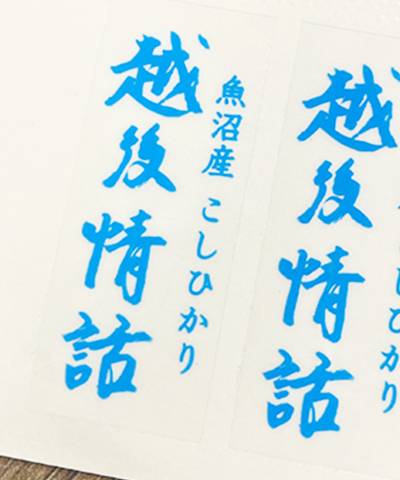 魚沼産 こしひかり
越後情話
かり
越後情話